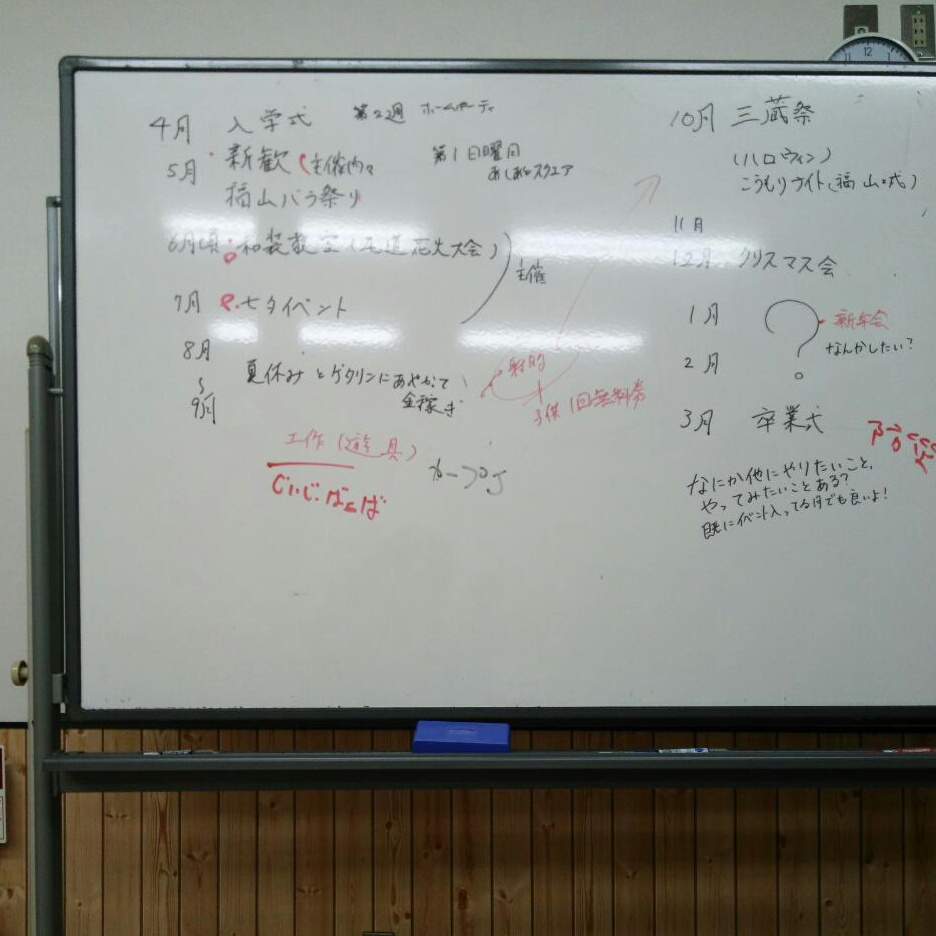 4月 入学式 第2週 ホームパーティ
5月 新歓 (主催内々 第1日曜日
あしあとスクエア
福山バラ祭り
6月頃 和装教室 (尾道花火大会)
主催
7月 七夕イベント
8月
〜
9月
夏休み とゲタリンにあやかって
金稼ぎ
射的
子供1回無料券
工作(遊具)
じぃじ・ばぁば
10月 三蔵祭
(ハロウィン)
こうもりナイト(福山城)
11月
12月 クリスマス会
1月
?
新年会
なんかしたい?
2月
3月 卒業式
なにか他にやりたいこと、
やってみたいことある?
既にイベント入ってる月でも良いよ!
12